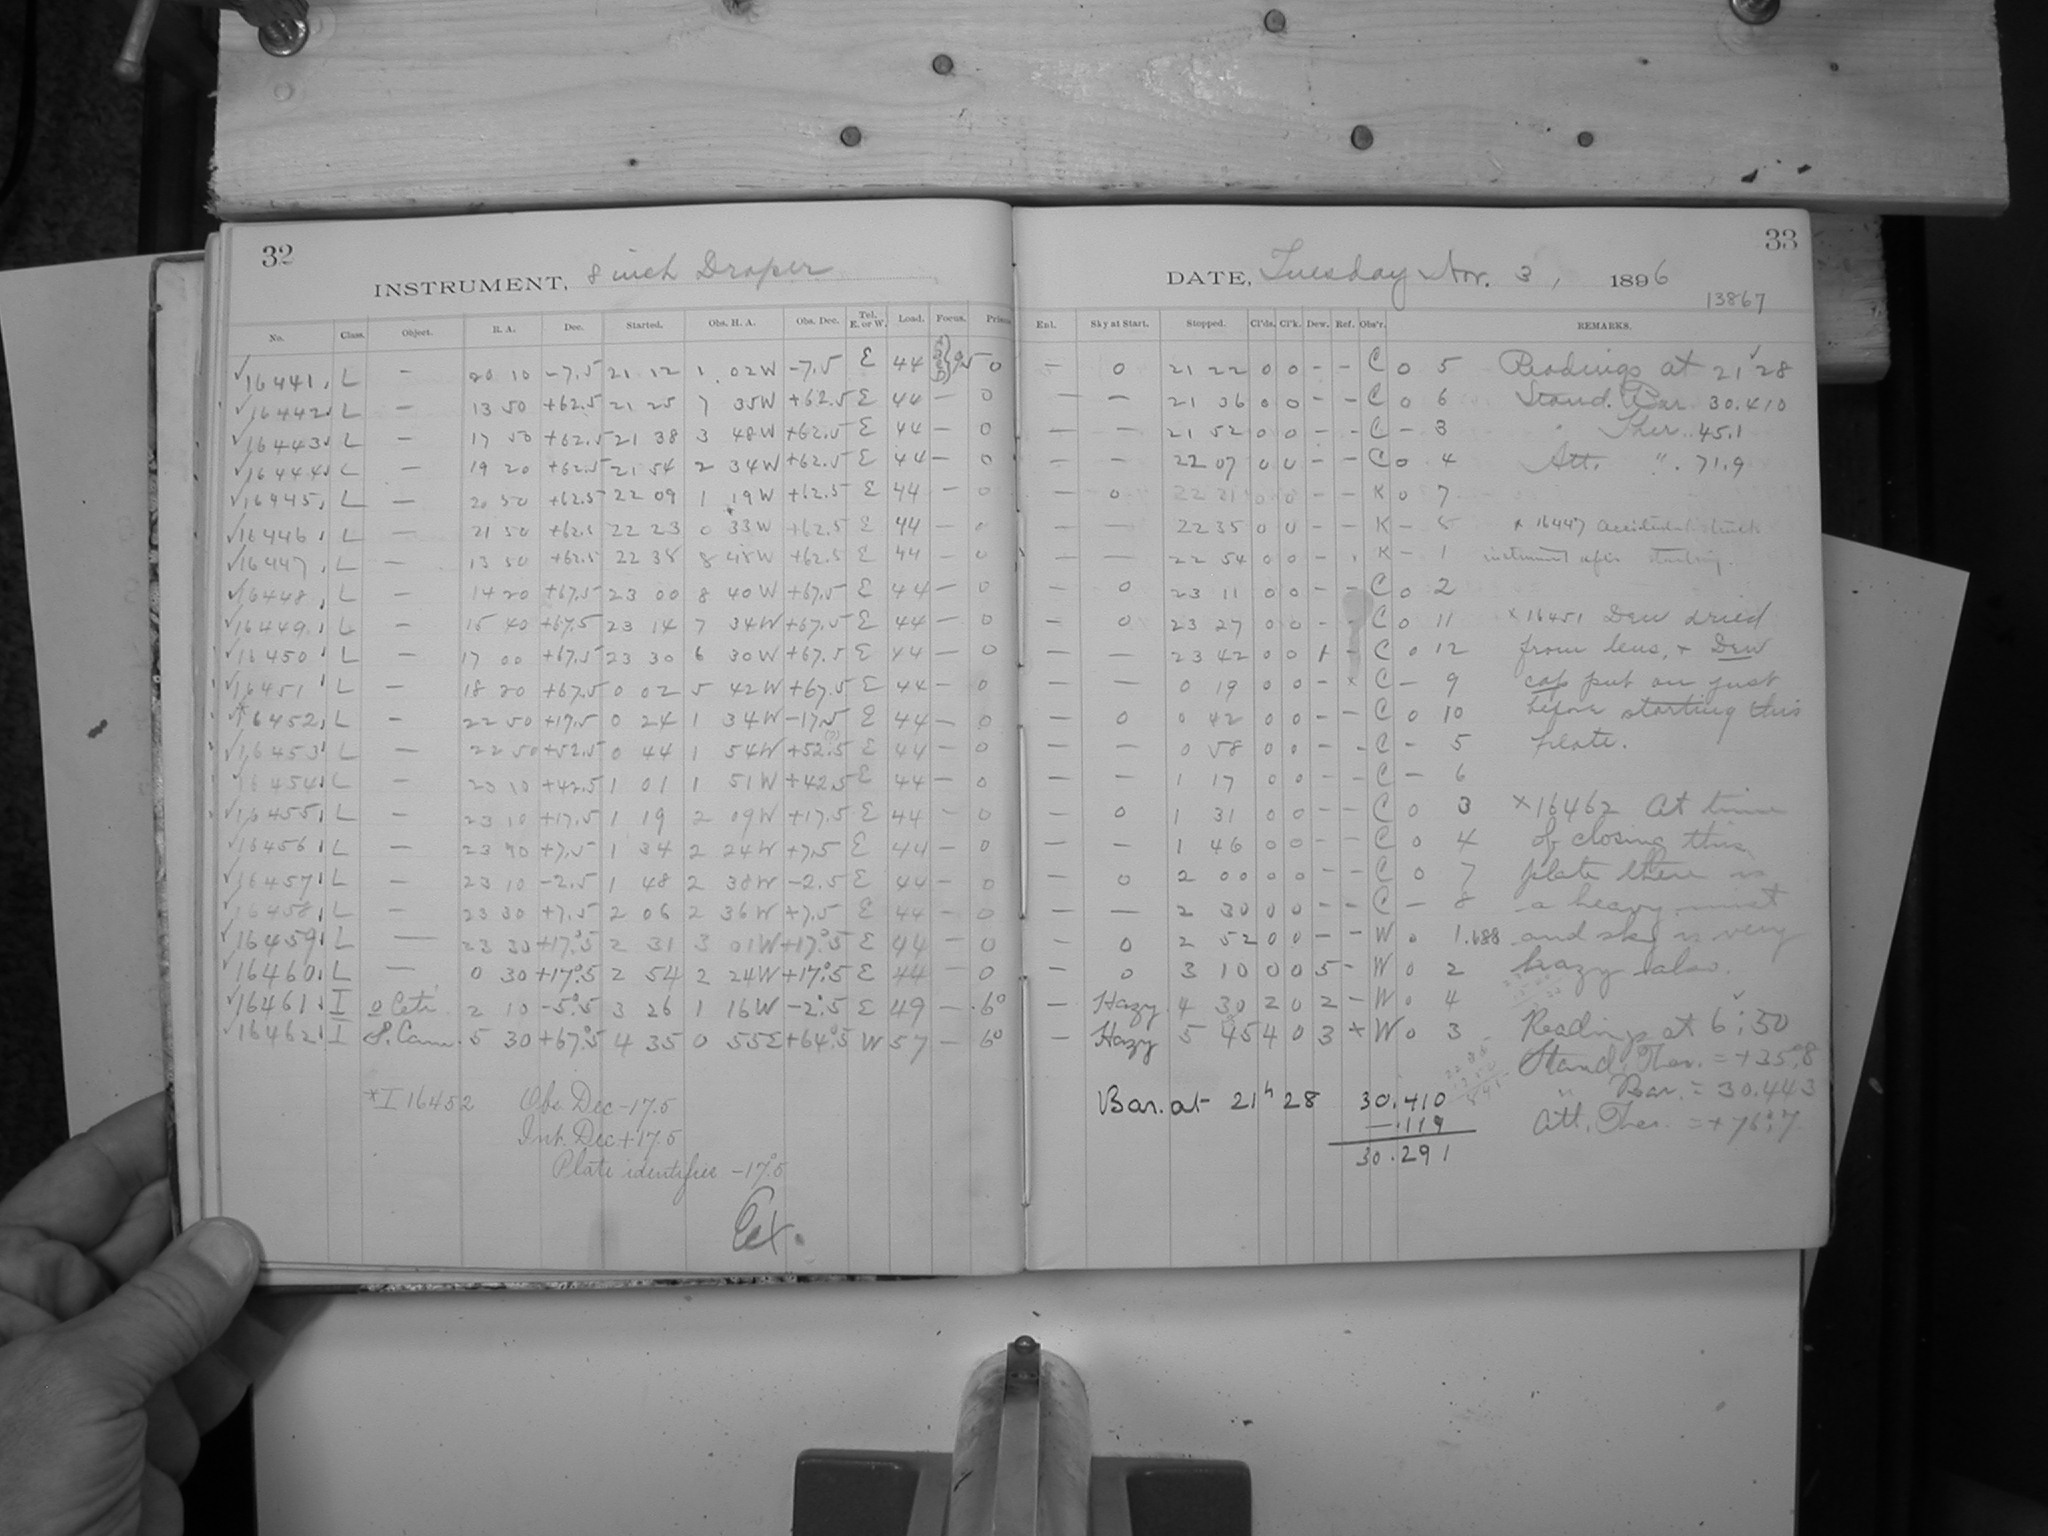 32
INSTRUMENT, 8 inch Draper
No. Class. Object. R. A. Dec. Started. Obs. H. A. Obs. Dec. Tel. E. or W. Load. Focus. Prism
16441 L — 20 10 -7.5 21 12 1 02W -7.5 E 44 9.5 0
16442 L — 13 50 +62.5 21 25 7 35W +62.5 E 44 — 0
16443 L — 17 50 +62.5 21 38 3 48W +62.5 E 44 — 0
16444 L — 19 20 +62.5 21 54 2 34W +62.5 E 44 — 0
16445 L — 20 50 +62.5 22 09 1 19W +62.5 E 44 — 0
16446 L — 21 50 +62.5 22 23 0 33W +62.5 E 44 — 0
16447 L — 13 50 +62.5 22 38 8 48W +62.5 E 44 — 0
16448 L — 14 20 +67.5 23 00 8 40W +67.5 E 44 — 0
16449 L — 15 40 +67.5 23 14 7 34W +67.5 E 44 — 0
16450 L — 17 00 +67.5 23 30 6 30W +67.5 E 44 — 0
16451 L — 18 20 +67.5 0 02 5 42W +67.5 E 44 — 0
*16452 L — 22 50 +17.5 0 24 1 34W -17.5 E 44 — 0
16453 L — 22 50 +52.5 0 44 1 54W +52.5 (?) E 44 — 0
16454 L — 23 10 +42.5 1 01 1 51W +42.5 E 44 — 0
16455 L — 23 10 +17.5 1 19 2 09W +17.5 E 44 — 0
16456 L — 23 10 +7.5 1 34 2 24W +7.5 E 44 — 0
16457 L — 23 10 -2.5 1 48 2 38W -2.5 E 44 — 0
16458 L — 23 30 +7.5 2 06 2 36W +7.5 E 44 — 0
16459 L — 23 30 +17°.5 2 31 3 01W +17°.5 E 44 — 0
16460 L — 0 30 +17°.5 2 54 2 24W +17°.5 E 44 — 0
16461 I o Ceti 2 10 -5°.5 3 26 1 16W -2°.5 E 49 — 6°
16462 I S. Cam. 5 30 +67°.5 4 35 0 55E +64°.5 W 57 — 6°
*I 16452 Obs Dec -17.5
Int. Dec +17.5
Plate identifies -17°.5
Ext.
33
DATE, Tuesday Nov. 3, 1896
13867
Enl. Sky at Start. Stopped. Cl'ds. Cl'k. Dew. Ref. Obs'r. REMARKS.
— 0 21 22 0 0 - - C 0 5 Readings at 21 28
— — 21 36 0 0 - - C 0 6 Stand. Bar. 30.410
— — 21 52 0 0 - - C - 3 " Ther. 45.1
— — 22 07 0 0 - - C 0 4 Att. " 71.9
— 0 22 21 0 0 - - K 0 7
— — 22 35 0 0 - - K - 8 × 16447 Accidentally struck
— — 22 54 0 0 - . K - 1 instrument after starting.
— 0 23 11 0 0 - - C 0 2
— 0 23 27 0 0 - - C 0 11 ×16451 Dew dried
— — 23 42 0 0 1 - C 0 12 from lens, + Dew
— — 0 19 0 0 - × C - 9 cap put on just
— 0 0 42 0 0 - - C 0 10 before starting this
— — 0 58 0 0 - - C - 5 plate.
— — 1 17 0 0 - - C - 6
— 0 1 31 0 0 - - C 0 3 ×16462 At time
— — 1 46 0 0 - - C 0 4 of closing this
— 0 2 00 0 0 - - C 0 7 plate there is
— — 2 30 0 0 - - C - 8 a heavy mist
— 0 2 52 0 0 - - W 0 1.688 and sky is very
— 0 3 10 0 0 5 - W 0 2 hazy also.
— Hazy 4 30 2 0 2 - W 0 4
— Hazy 5 45 4 0 3 × W 0 3 Readings at 6:50
Stand. Ther. = +35°.8
" Bar. = 30.443
Att. Ther. = +76°.7
Bar. at 21h 28 30.410
-.119
30.291